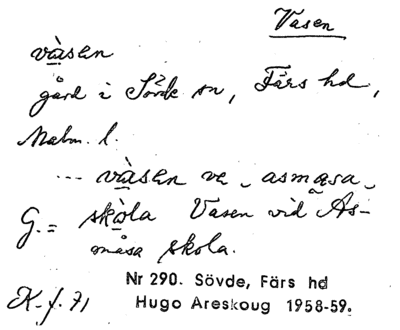 Vasen
vàsen
gård i Sövde sn, Färs hd,
Malm. l.
... vàsen ve asmasa
G. = skòla Vasen vid As-
måsa skola.
Nr 290. Sövde, Färs hd
K-f. 71 Hugo Areskoug 1958-59.